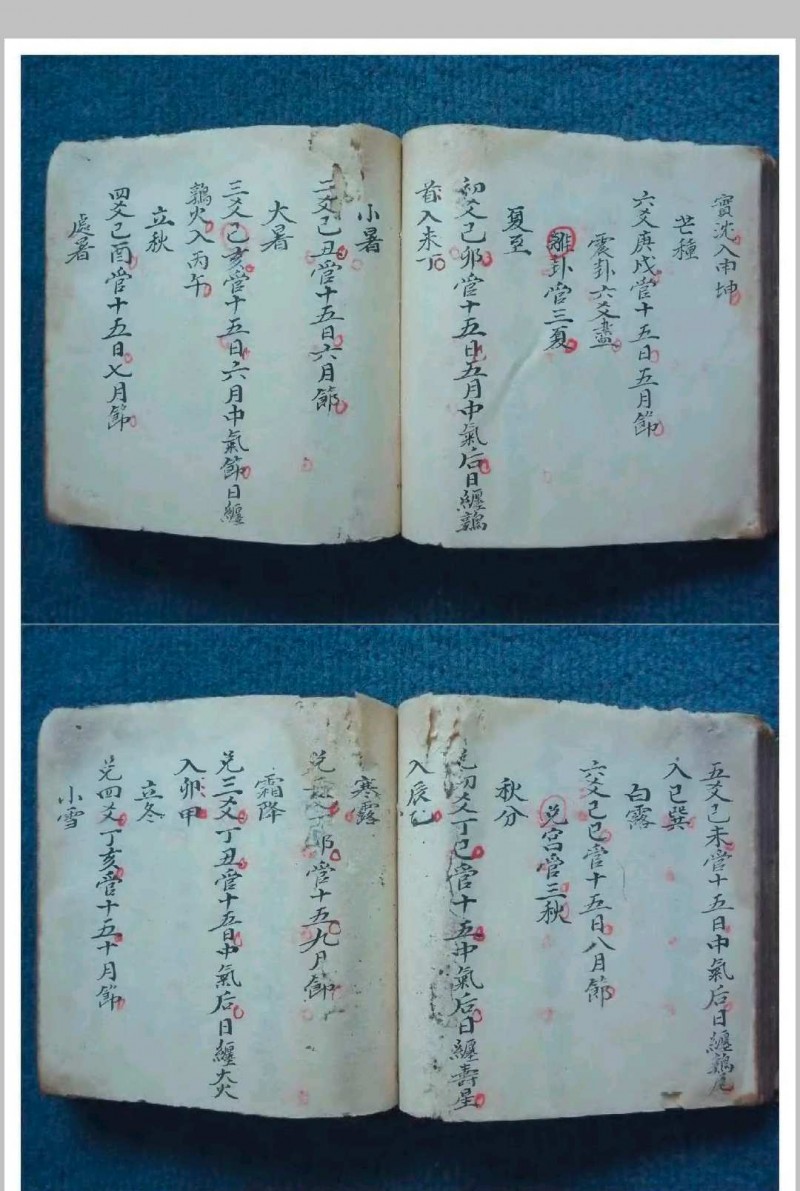 實沈入申坤
芒種
六爻庚戌管十五日五月節
震卦六爻盡
離卦管三夏
夏至
初爻己卯管十五日五月中氣后日纏鶉
首入未丁
小暑
二爻己丑管十五日六月節
大暑
三爻己亥管十五日六月中氣節日纏
鶉火入丙午
立秋
四爻己酉管十五日七月節
處暑
五爻己未管十五日中氣后日纏鶉尾
入巳巽
白露
六爻己巳管十五日八月節
兑宮管三秋
秋分
兑初爻丁巳管十五中氣后日纏壽星
入辰乙
寒露
兑 管十五九月節
霜降
兑三爻丁丑管十五日中氣后日纏大火
入卯甲
立冬
兑四爻丁亥管十五十月節
小雪